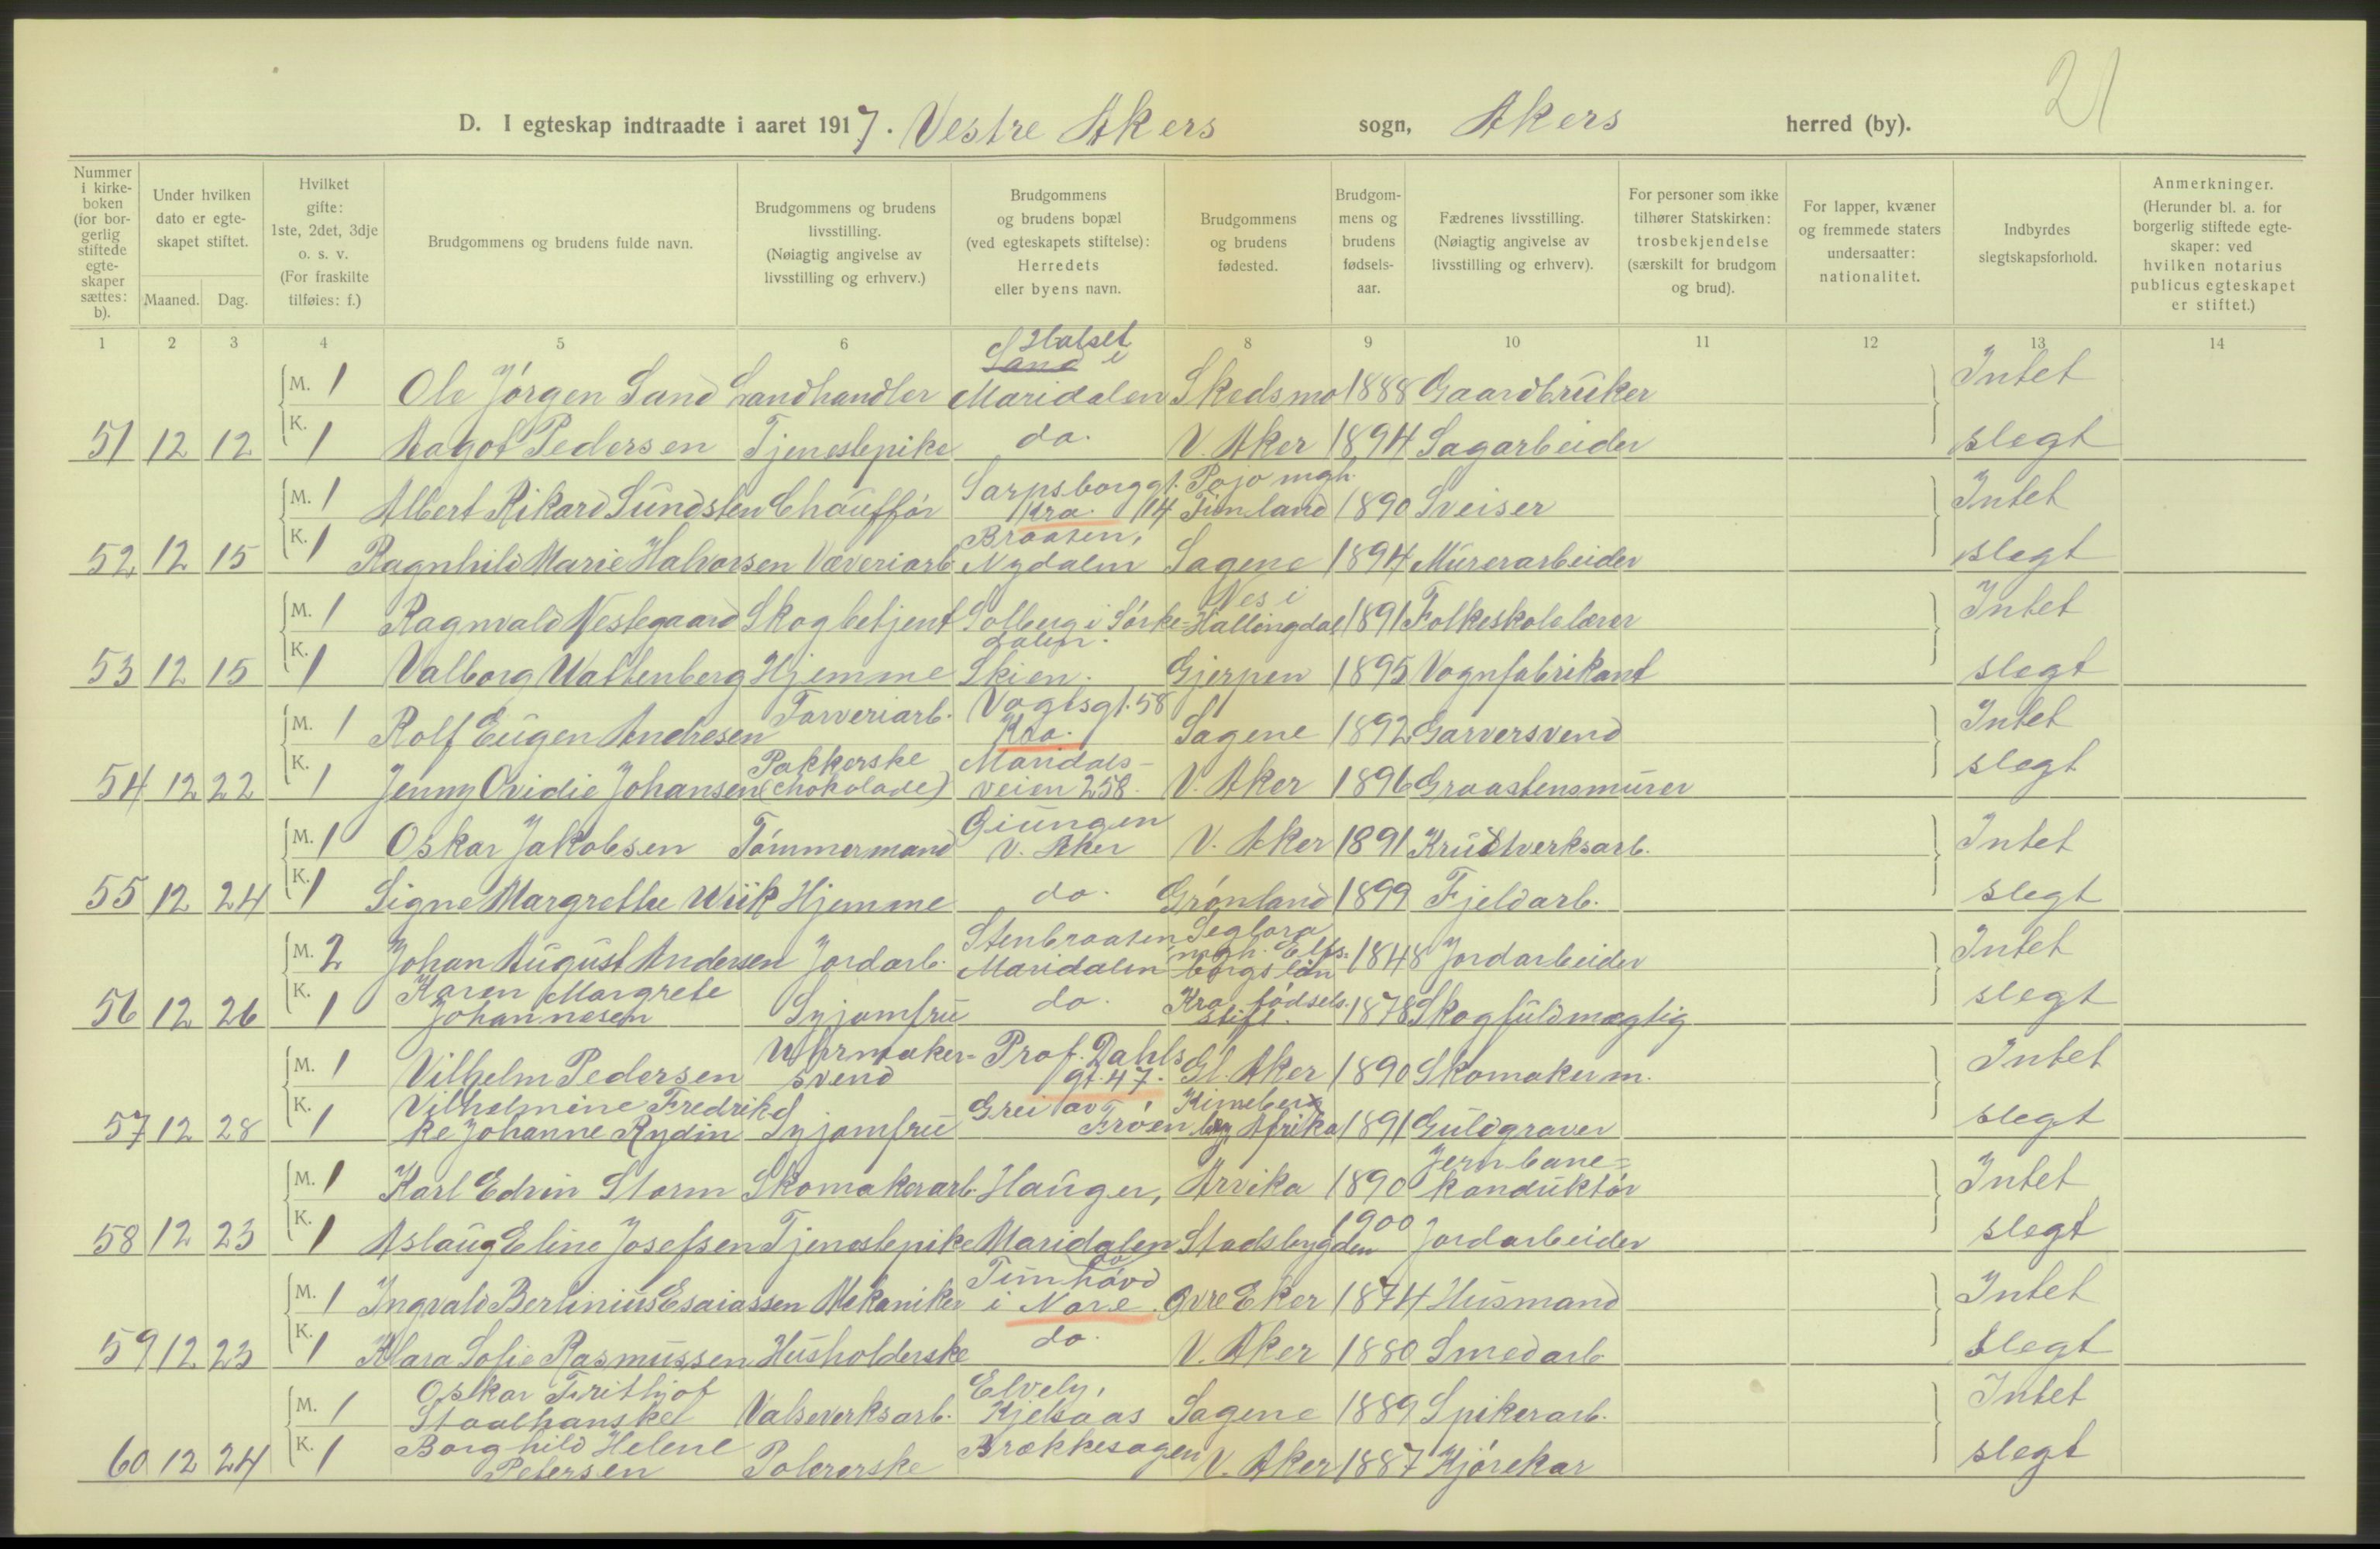 21
D. I egteskap indtraadte i aaret 1917. Vestre Akers sogn, Akers herred (by).
Nummer i kirke-boken (for bor-gerlig stiftede egte-skaper sættes: b). Under hvilken dato er egte-skapet stiftet. Maaned. Dag. Hvilket gifte: 1ste, 2det, 3dje o. s. v. (For fraskilte tilføies: f.) Brudgommens og brudens fulde navn. Brudgommens og brudens livsstilling. (Nøiagtig angivelse av livsstilling og erhverv.) Brudgommens og brudens bopæl (ved egteskapets stiftelse): Herredets eller byens navn. Brudgommens og brudens fødested. Brudgom-mens og brudens fødsels-aar. Fædrenes livsstilling. (Nøiagtig angivelse av livsstilling og erhverv). For personer som ikke tilhører Statskirken: trosbekjendelse (særskilt for brudgom og brud). For lapper, kvæner og fremmede staters undersaatter: nationalitet. Indbyrdes slegtskapsforhold. Anmerkninger. (Herunder bl. a. for borgerlig stiftede egte-skaper: ved hvilken notarius publicus egteskapet er stiftet.)
1 2 3 4 5 6 7 8 9 10 11 12 13 14
M. 1 Ole Jörgen Sand Landhandler Sand i Maridalen Skedsmo 1888 Gaardbruker Intet
51 12 12 K. 1 Aagot Pedersen Tjenestepike do. V. Aker 1894 Sagarbeider slegt
M. 1 Albert Rikard Sundsten Chaufför Sarpsborggt. 14 Kra. Pojo mgh. Finland 1890 Sveiser Intet
52 12 15 K. 1 Ragnhild Marie Halvorsen Væveriarb. Braaten, Nydalen Sagene 1894 Murerarbeider slegt
M. 1 Ragnvald Nestegaard Skogbetjent Solberg i Sörke-dalen. Nes i Hallingdal 1891 Folkeskolelærer Intet
53 12 15 K. 1 Valborg Wattenberg Hjemme Skien. Gjerpen 1895 Vognfabrikant slegt
M. 1 Rolf Eugen Andresen Farveriarb. Vogtsgt. 58 Kra. Sagene 1892 Garversvend Intet
54 12 22 K. 1 Jenny Ovidie Johansen Pakkerske (chokolade) Maridals-veien 258. V. Aker 1896 Graastensmurer slegt
M. 1 Oskar Jakobsen Tömmermand Gjungen V. Aker V. Aker 1891 Krudtverksarb. Intet
55 12 24 K. 1 Signe Margrethe Wiik Hjemme do. Grönland 1899 Fjeldarb. slegt
M. 2 Johan August Andersen Jordarb. Stenbraaten Maridalen Seglora mgh. Elfs-borgs län 1848 Jordarbeider Intet
56 12 26 K. 1 Karen Margrete Johannesen Syjomfru do. Kra födsels-stift. 1878 Skogfuldmægtig slegt
M. 1 Vilhelm Pedersen Uhrmaker-svend Prof. Dahls gt. 47. Gl. Aker 1890 Skomakerm. Intet
57 12 28 K. 1 Vilhelmine Fredrik-ke Johanne Rydin Syjomfru Grei av Fröen Afrika 1891 Guldgraver slegt
M. 1 Karl Edvin Storm Skomakerarb. Hauger, Arvika 1890 Jernbane-konduktör Intet
58 12 23 K. 1 Aslaug Eline Josefsen Tjenestepike Maridalen Stadsbygden 1900 Jordarbeider slegt
M. 1 Ingvald Berlinius Esaiassen Mekaniker i Nore. Övre Eker 1874 Husmand Intet
59 12 23 K. 1 Klara Sofie Rasmussen Husholderske do. V. Aker 1880 Smedarb. slegt
M. 1 Oskar Frithjof Staalhanske Valseverksarb. Elvely, Kjelsaas Sagene 1889 Spikerarb. Intet
60 12 24 K. 1 Borghild Helene Petersen Polererske Brækkesagen V. Aker 1887 Kjörekar slegt